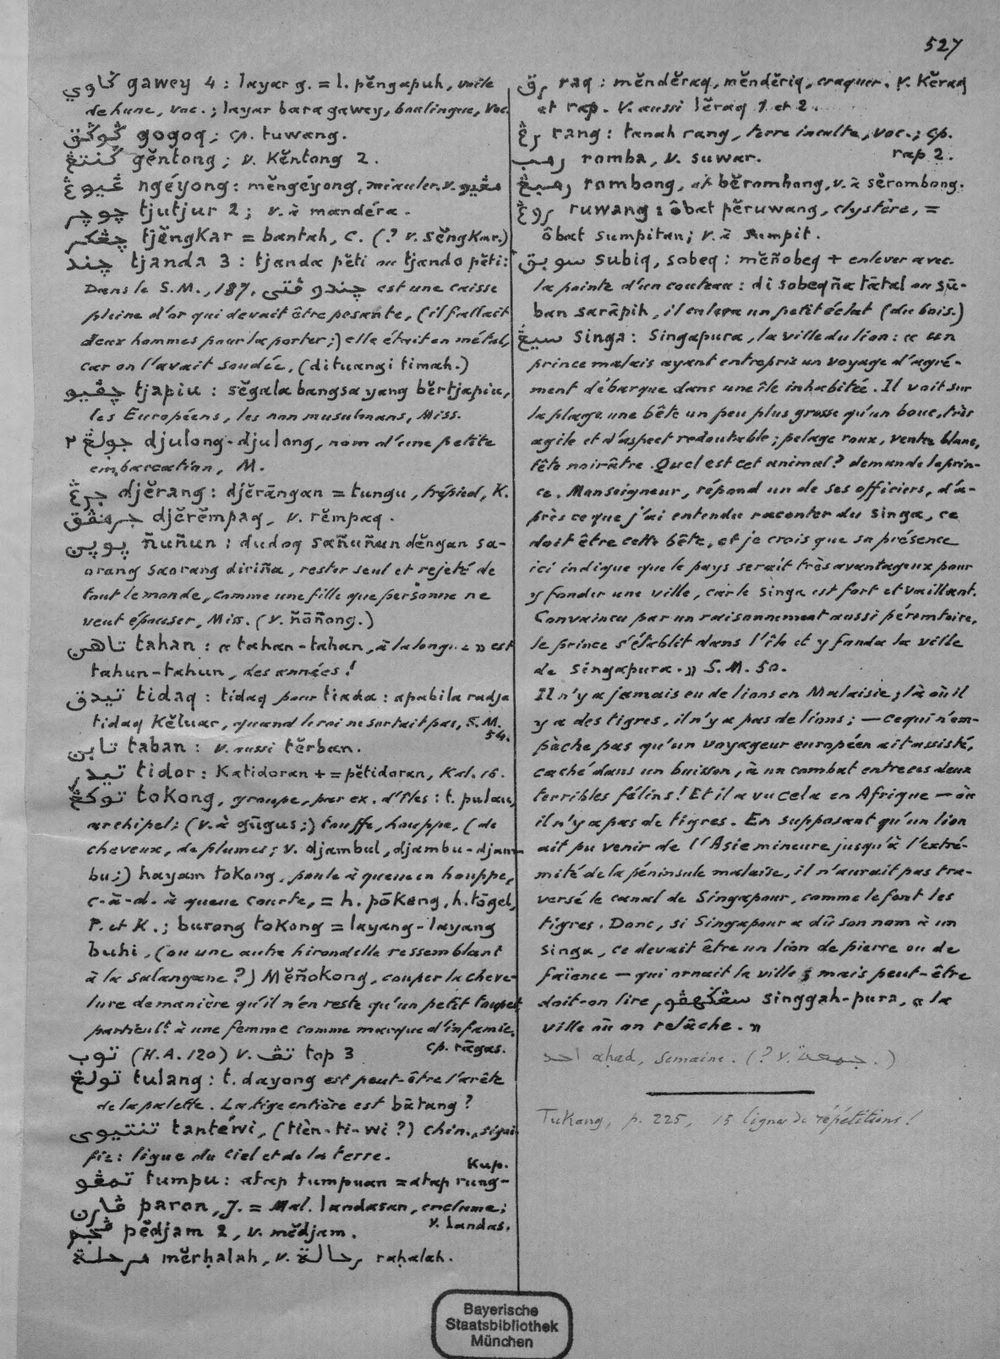 527
ݢاوي gawey 4 : layar g. = l. pĕngapuh, voile
de hune, voc. ; layar bara gawey, boulingue, Voc.
ݢوݢق gogoq ; cp. tuwang.
ݢنتڠ gĕntong ; v. Kĕntong 2.
ڠيوڠ ngéyong : mĕngéyong, miauler, v. مڠيو
چوچر tjutjur 2 ; v. à mandéra.
چڠكر tjĕngkar = bantah, C. (? v. sĕngkar.)
چند tjanda 3 : tjanda pĕti ou tjando pĕti :
Dans le S.M., 187, چندو ڤتي est une caisse
pleine d'or qui devait être pesante, (il fallait
deux hommes pour la porter ;) elle était en métal,
car on l'avait soudée, (dituangi timah.)
چڤيو tjapiu : sĕgala bangsa yang bĕrtjapiu,
les Européens, les non musulmans, Miss.
جولڠ ٢ djulong-djulong, nom d'une petite
embarcation, M.
جرڠ djĕrang : djĕrāngan = tungu, trépied, K.
جرمڤق djĕrĕmpaq, v. rĕmpaq.
ñuñun : duduq sañuñun dĕngan sa-
orang saorang diriña, rester seul et rejeté de
tout le monde, comme une fille que personne ne
veut épouser, Miss. (v. ñāñong.)
تاهن tahan : « tahan-tahan, à la longue » est
tahun-tahun, des années !
تيدق tidaq : tidaq pour tiada : apabila radja
tidaq Kĕluar, quand le roi ne sortait pas, S.M.
54.
تابن taban : v. aussi tĕrban.
تيدر tidor : Katidoran + = pĕtidoran, Kal. 16.
توكڠ tokong, groupe, par ex. d'îles : t. pulau,
archipel ; (v. à gūgus ;) touffe, houppe, (de
cheveux, de plumes ; v. djambul, djambu-djam-
bu ;) hayam tokong, poule à queue en houppe,
c.-à-d. à queue courte, = h. pōkong, h. tōgel,
P. et K. ; burong tokong = layang-layang
buhi, (ou une autre hirondelle ressemblant
à la Salangane ?) Mĕñokong, couper la cheve-
lure de manière qu'il n'en reste qu'un petit toupet
particult à une femme comme marque d'infamie.
cp. rāgas.
توب (H.A. 120) v. تڤ top 3
تولڠ tulang : t. dayong est peut-être l'arête
de la palette. La tige entière est bātang ?
تنتيوي tantéwi, (tièn-ti-wi ?) chin., signi-
fie : ligue du ciel et de la terre.
Kup.
تمڤو tumpu : atap tumpuan = atap rung-
ڤارن paron, J. = Mal. landasan, enclume ;
v. landas.
ڤجم pĕdjam 2, v. mĕdjam.
مرحلة mĕrḥalah, v. رحالة raḥalah.
رق raq : mĕndĕraq, mĕndĕriq, craquer. v. Kĕraq
et rap. V. aussi lĕraq 1 et 2.
رڠ rang : tanah rang, terre inculte, voc. ; cp.
rap 2.
رمب romba, v. suwar.
رمبڠ rombong, ak bĕrombong, v. à sĕrombong.
روڠ ruwang : ôbat pĕruwang, clystère, =
ôbat sumpitan ; v. à sumpit.
سوبق subiq, sobeq : mĕñobeq + enlever avec
la pointe d'un couteau : di sobeqña tātal ou sū-
ban sarāpih, il enleva un petit éclat (du bois.)
سيڠ singa : Singapura, la ville du lion : « un
prince malais ayant entrepris un voyage d'agré-
ment débarque dans une île inhabitée. Il voit sur
la plage une bête un peu plus grosse qu'un bouc, très
agile et d'aspect redoutable ; pelage roux, ventre blanc,
tête noirâtre. Quel est cet animal ? demande le prin-
ce. Monseigneur, répond un de ses officiers, d'a-
près ce que j'ai entendu raconter du singa, ce
doit être cette bête, et je crois que sa présence
ici indique que le pays serait très avantageux pour
y fonder une ville, car le singa est fort et vaillant.
Convaincu par un raisonnement aussi péremtoire,
le prince s'établit dans l'île et y fonda la ville
de Singapura. » S.M. 50.
Il n'y a jamais eu de lions en Malaisie ; là où il
y a des tigres, il n'y a pas de lions ; — ce qui n'em-
pêche pas qu'un voyageur européen ait assisté,
caché dans un buisson, à un combat entre ces deux
terribles félins ! Et il a vu cela en Afrique — où
il n'y a pas de tigres. En supposant qu'un lion
ait pu venir de l'Asie mineure jusqu'à l'extré-
mité de la péninsule malaise, il n'aurait pas tra-
versé le canal de Singapour, comme le font les
tigres. Donc, si Singapour a dû son nom à un
singa, ce devait être un lion de pierre ou de
faïance — qui ornait la ville ; mais peut-être
doit-on lire, singgah-pura, « la
ville où on relâche. »
احد aḥad, semaine. (? v. جمعة.)
Tukang, p. 225, 15 lignes de répétitions !
Bayerische
Staatsbibliothek
München